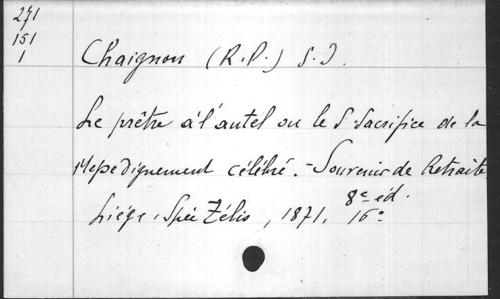 271
151
1
Chaignon (R.P.) S.J.
Le prêtre à l'autel ou le S. Sacrifice de la
Messe dignement célébré. - Souvenir de Retraite
8e éd.
Liège, Spée Zélis, 1871, 16°